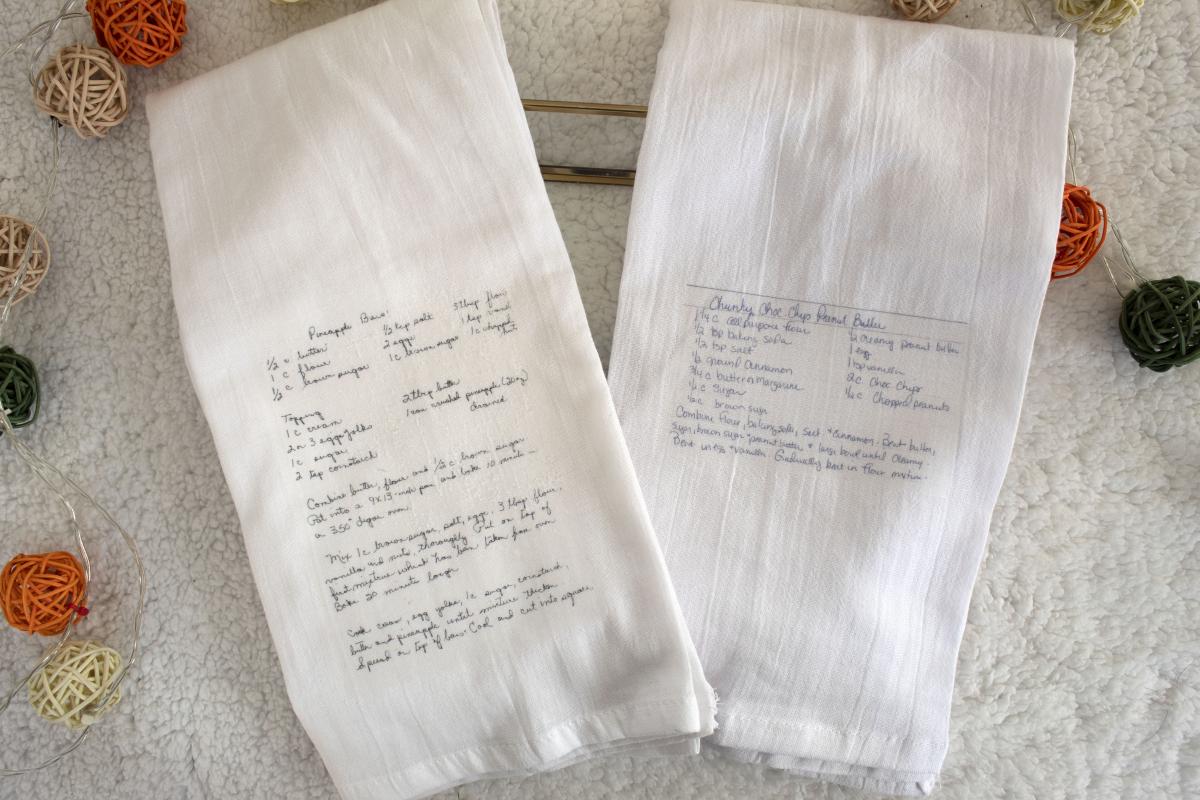 Pineapple Bars
½ c butter ½ tsp salt 3 tbsp flour
1 c flour 2 eggs 1 tsp vanilla
½ c brown sugar 1c brown sugar 1c chopped
nut
Topping
1 c cream 2 tbsp butter
2 or 3 egg yolks 1 can crushed pineapple (20 oz)
1c sugar drained
2 tsp cornstarch
Combine butter, flour and ½ c brown sugar
Pat into a 9x13-inch pan and bake 10 minute
a 350° degree oven.
Mix 1c brown sugar, salt, eggs, 3 tbsp flour,
vanilla and nuts, thoroughly. Put on top of
first mixture which has been taken from oven
Bake 20 minute longer
Cook cream, egg yolks, 1c sugar, cornstarch,
butter and pineapple until mixture thicken
Spread on top of bars. Cool and cut into square
Chunky Choc Chips Peanut Butter
1¼ c all purpose flour ½ creamy peanut butter
½ tsp baking soda 1 egg
½ tsp salt 1 tsp vanilla
½ ground cinnamon 2c. Choc Chips
¾ c butter or margarine ½ c Chopped peanuts
½ c Sugar
½ c brown sugar
Combine flour, baking soda, salt + cinnamon. Beat butter,
sugar, brown sugar + peanut butter large bowl until creamy.
Beat in egg + vanilla. Gradually beat in flour mixture.